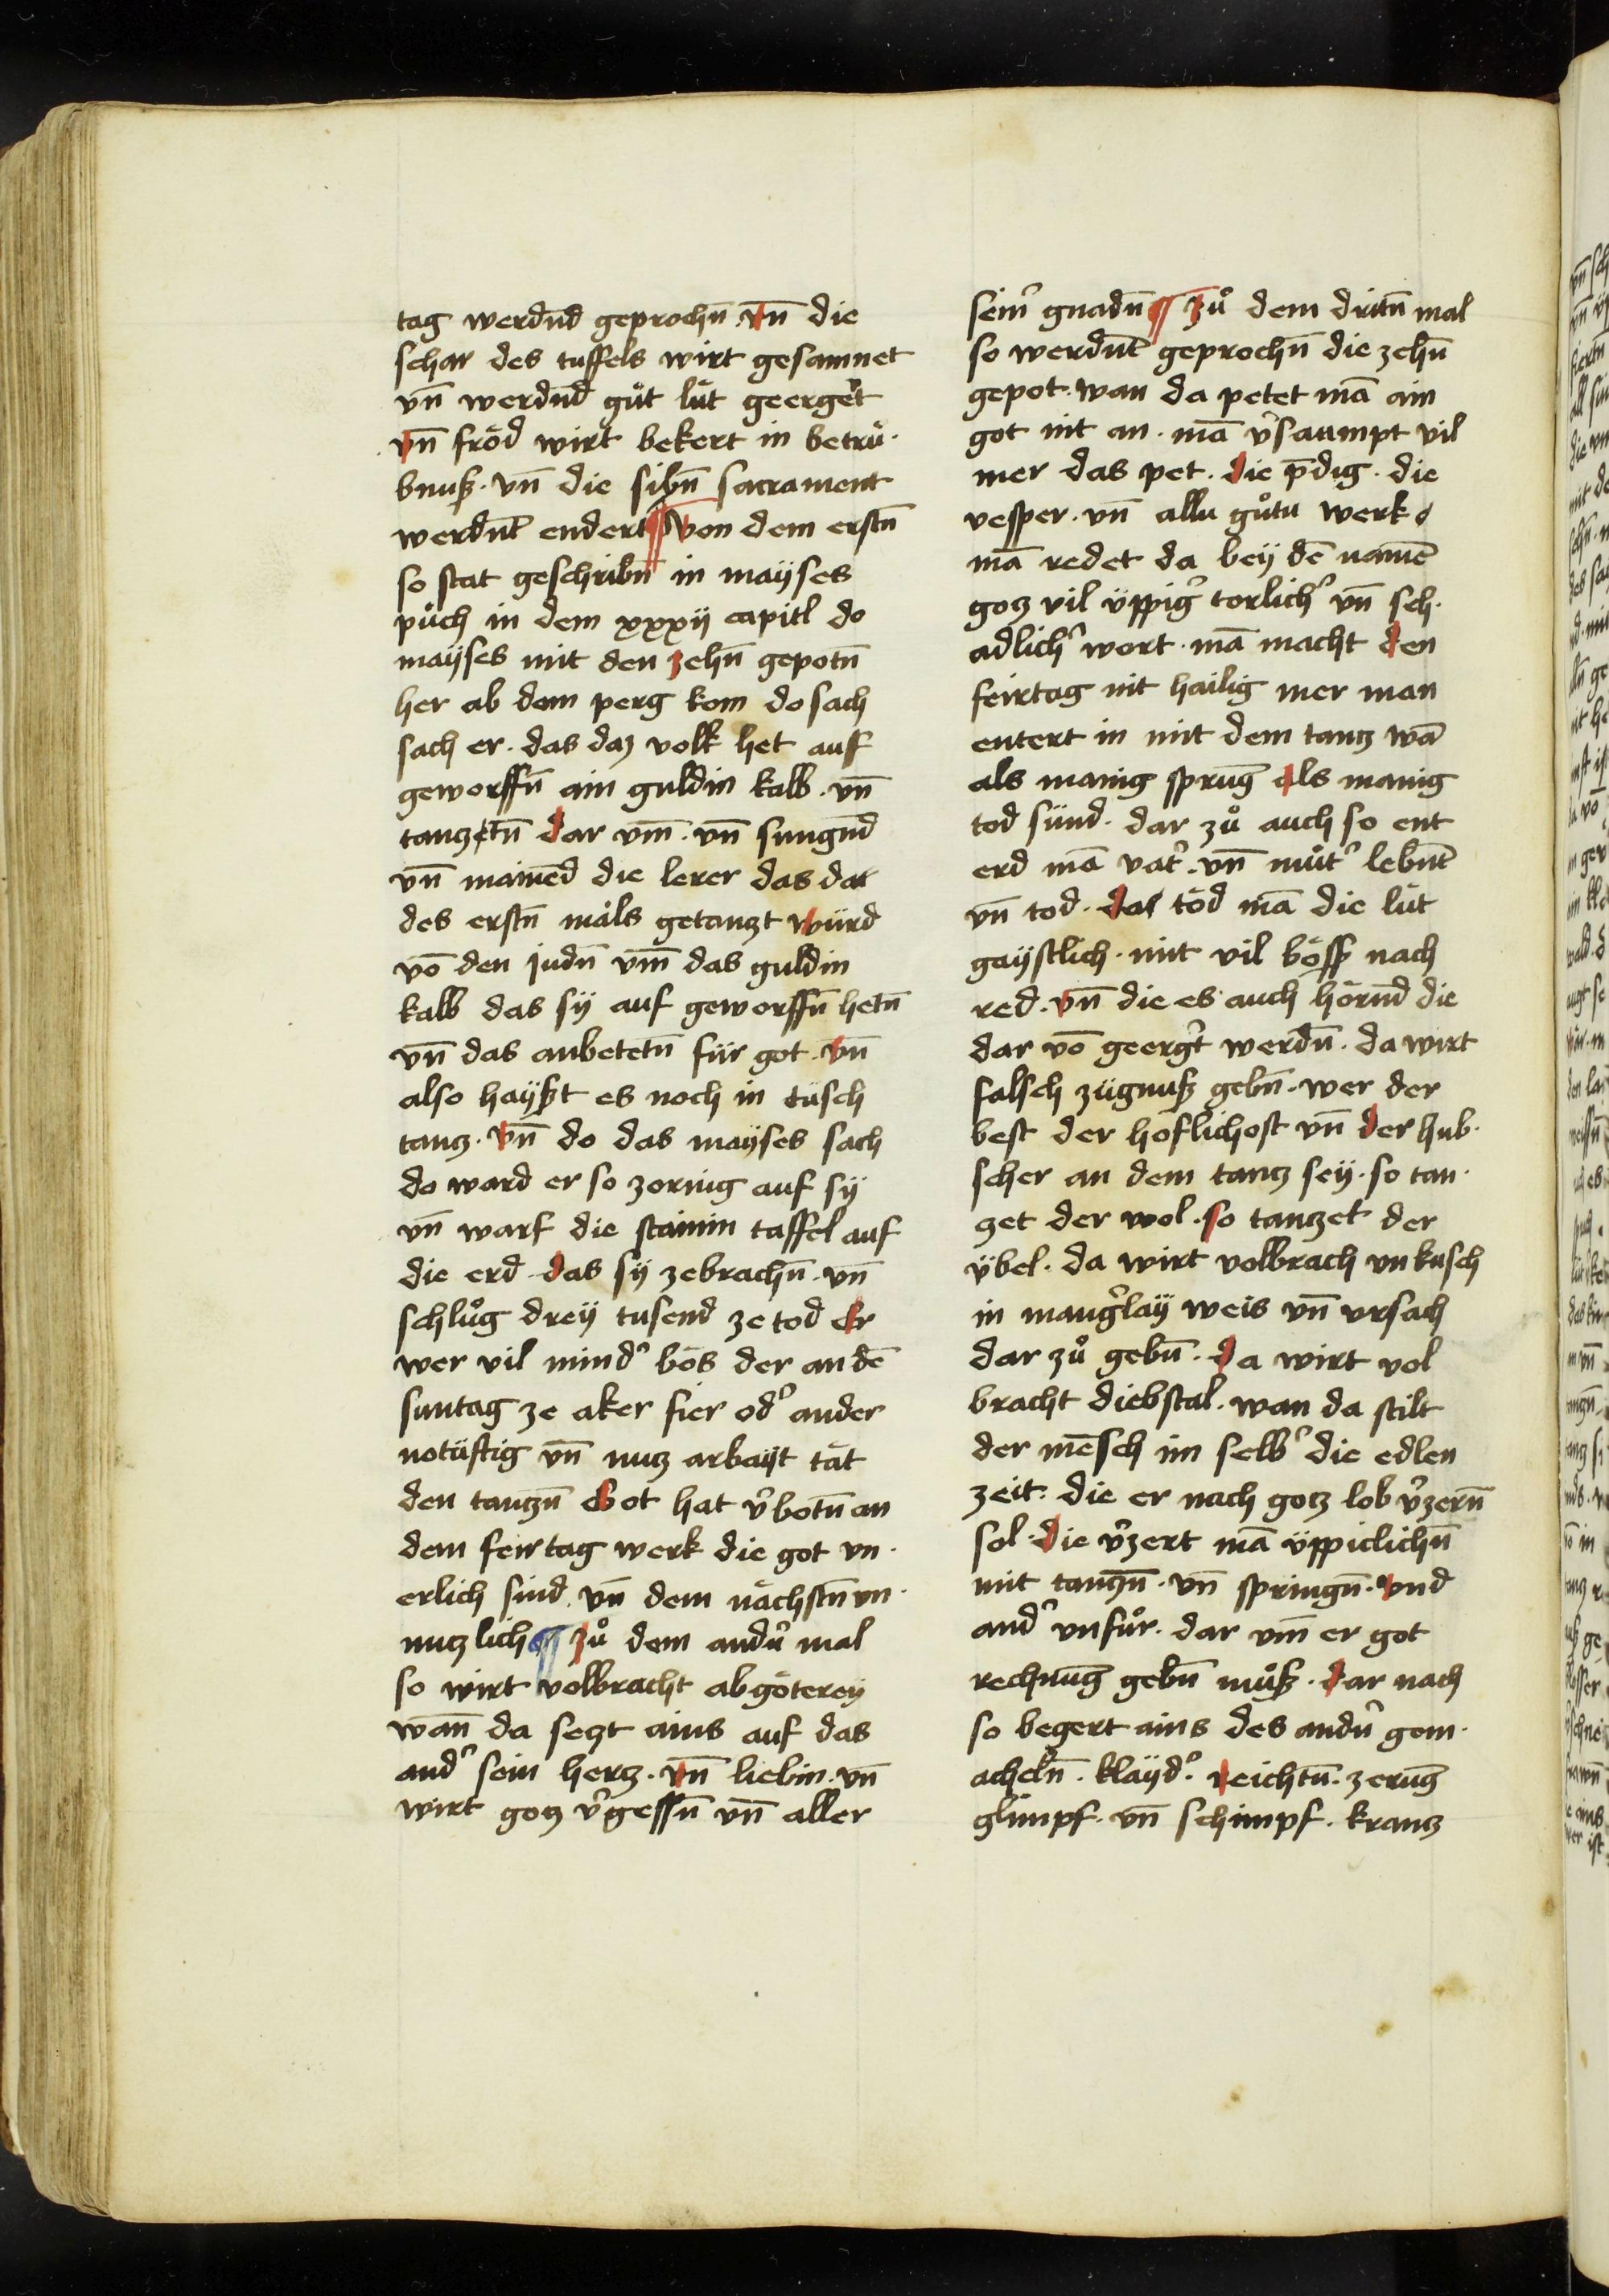 tag werdnd geprochn̄ · vn̄ die
schar des tuffels wirt gesamnet
vn̄ werdnd gůt lüt geerget
vn̄ fröd wirt bekert in betrü·
bnuß · vn̄ die sibn̄ sacrament
werdn̄t endert ¶ Von dem erstn̄
so stat geschribn̄ in maÿses
půch in dem xxxij capitl do
maÿses mit den zehn̄ gepotn̄
her ab dem perg kom do sach
sach er · das daz volk het auf
geworffn̄ ain guldin kalb · vn̄
tanzetn̄ dar vm̄ · vn̄ sungnd
vn̄ mainēd die lerer das dar
des erstn̄ mäls getanzt würd
vō den judn̄ vm̄ das guldin
kalb das sÿ auf geworffn̄ hetn̄
vn̄ das anbetetn̄ für got · vn̄
also hayßt es noch in tüsch
tanz · vn̄ do das maÿses sach
do ward er so zornig auf sÿ
vn̄ warf die stainin taffel auf
die erd · das sÿ zebrachn̄ · vn̄
schlůg dreÿ tusend ze tod Er
wer vil mind' bös der an dē
suntag ze aker fier od' ander
notüftig vn̄ nuz arbaÿt tät
den tanzn̄ Got hat v'botn̄ an
dem feirtag werk die got vn·
erlich sind · vn̄ dem nächstn̄ vn·
nuzlich ¶ zů dem andn' mal
so wirt volbracht abgöterey
wan̄ da sezt ains auf das
and' sein herz · vn̄ liebin · vn̄
wirt goz v'gessn̄ vn̄ aller
sein' gnadn̄ ¶ Zů dem dritn̄ mal
so werdn̄t geprochn̄ die zehn̄
gepot · wan da petet mā ain
got nit an · mā v'saumpt vil
mer das pet · die p̄dig · die
vesper · vn̄ allu gůtu werk
mā redet da beÿ dē namē
goz vil üppig' torlich' vn̄ sch·
adlich' wort · mā macht den
feirtag nit hailig mer man
entert in mit dem tanz wā
als manig sprūg als manig
tod sünd · dar zů auch so ent
erd mā vat' · vn̄ můt' lebn̄t
vn̄ tod · das töd mā die lüt
gaÿstlich · mit vil böss' nach
red · vn̄ die es auch hörnd die
dar vō geerg't werdn̄ · da wirt
falsch zügnuß gebn̄ · wer der
best der hoflichost vn̄ der hub·
scher an dem tanz seÿ · so tan·
zet der wol · so tanzet der
übel · da wirt volbrach vnkusch
in mang'laÿ weis vn̄ vrsach
dar zů gebn̄ · da wirt vol
bracht diebstal · wan da stilt
der mēsch im selb' die edlen
zeit · die er nach goz lob v'zern̄
sol · die v'zert mā üppiclichn̄
mit tanzn̄ · vn̄ springn̄ · vnd
and' vnfůr · dar vm̄ er got
rechnūg gebn̄ můß · dar nach
so begert ains des andn' gem·
acheln̄ · klaÿd' · reichtū · zerūg
glimpf · vn̄ schimpf · kranz